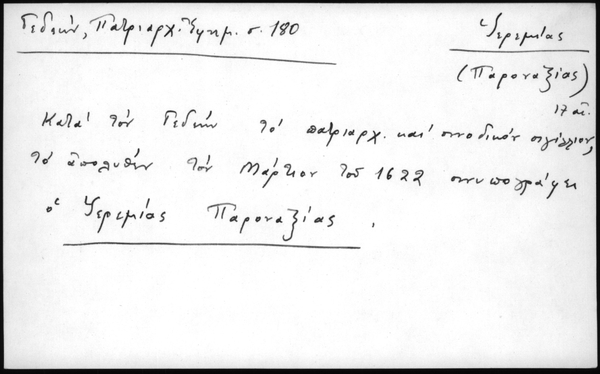 Γεδεών, Πατριαρχ. Ἐφημ. σ. 180
Ἱερεμίας
(Παροναξίας)
17 αἰ.
Κατά τόν Γεδεών τό πατριαρχ. καί συνοδικόν σιγίλλιον,
τό ἀπολυθέν τόν Μάρτιον τοῦ 1622 συνυπογράφει
ὁ Ἱερεμίας Παροναξίας.